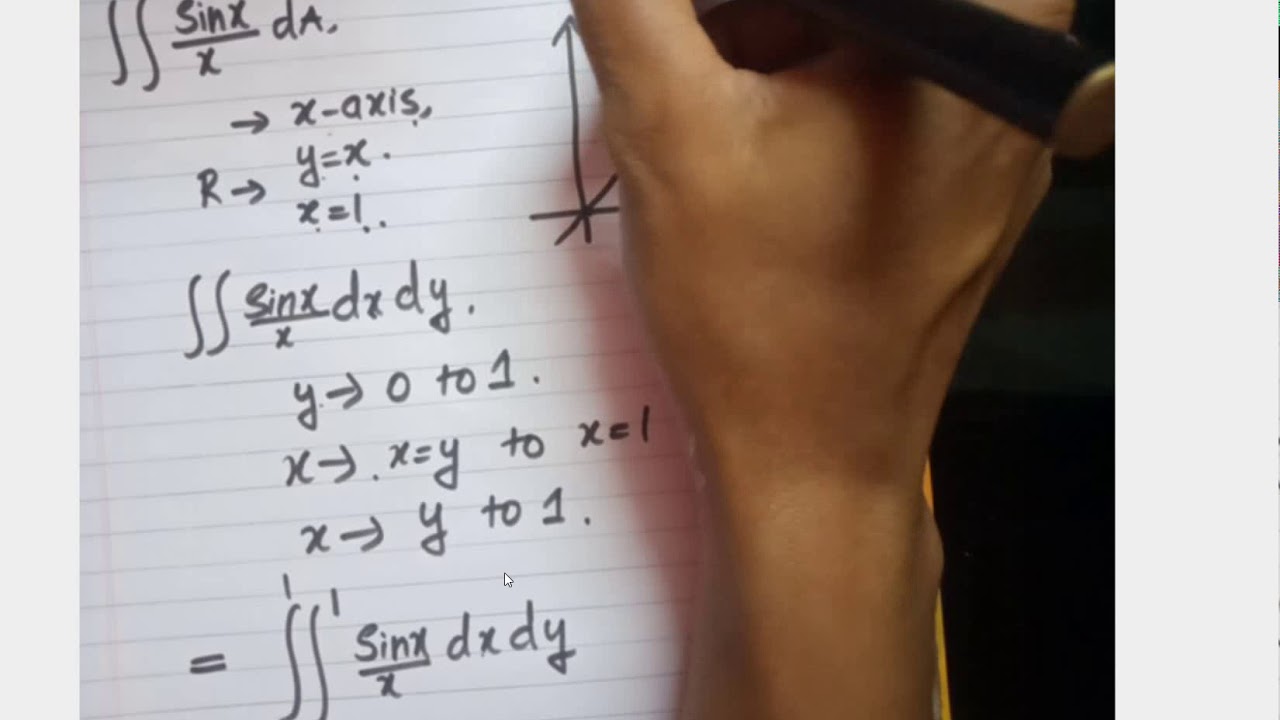 ∫∫ sinx/x dA.
→ x-axis.
R → y=x.
x=1.
∫∫ sinx/x dx dy.
y → 0 to 1.
x → x=y to x=1
x → y to 1.
= ∫¹∫¹ sinx/x dx dy